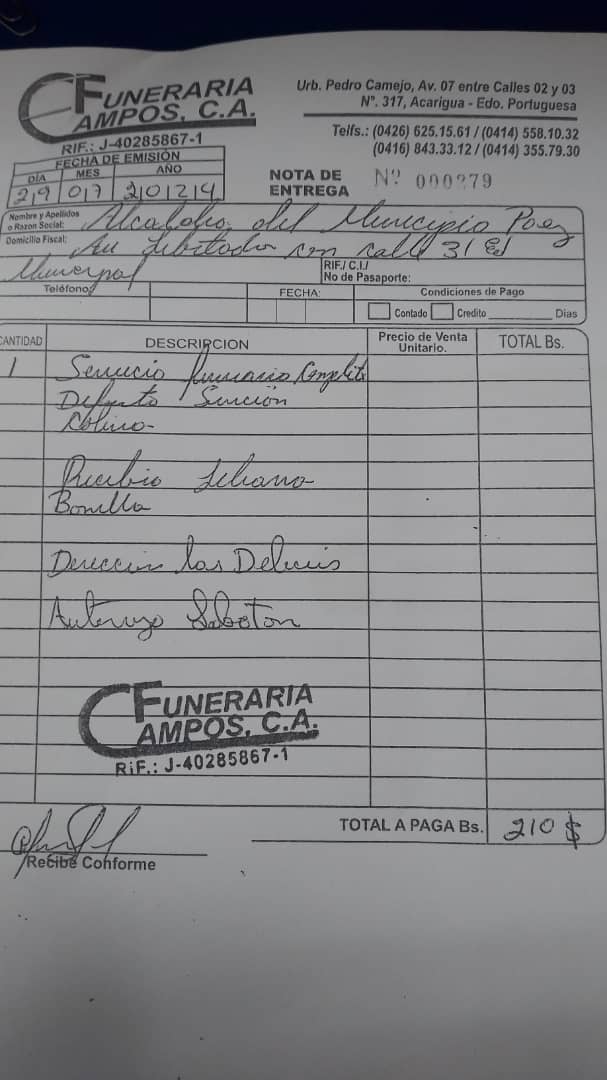 FUNERARIA
CAMPOS, C.A.
RIF.: J-40285867-1
Urb. Pedro Camejo, Av. 07 entre Calles 02 y 03
N°. 317, Acarigua - Edo. Portuguesa
Telfs.: (0426) 625.15.61 / (0414) 558.10.32
(0416) 843.33.12 / (0414) 355.79.30
FECHA DE EMISIÓN
DÍA MES AÑO
29 07 2024
NOTA DE ENTREGA Nº 000279
Nombre y Apellidos o Razon Social: Alcaldia del Municipio Paez
Domicilio Fiscal: Au Libertador con calle 31 Ed
Municipal
RIF./ C.I./
No de Pasaporte:
Teléfono FECHA: Condiciones de Pago
Contado Credito Dias
CANTIDAD DESCRIPCION Precio de Venta Unitario. TOTAL Bs.
1 Servicio funerario Completo
Difunto
Recibio
Bonilla
Direccion las Delicias
Autorizo
FUNERARIA
CAMPOS, C.A.
RiF.: J-40285867-1
TOTAL A PAGA Bs. 210 $
Recibe Conforme